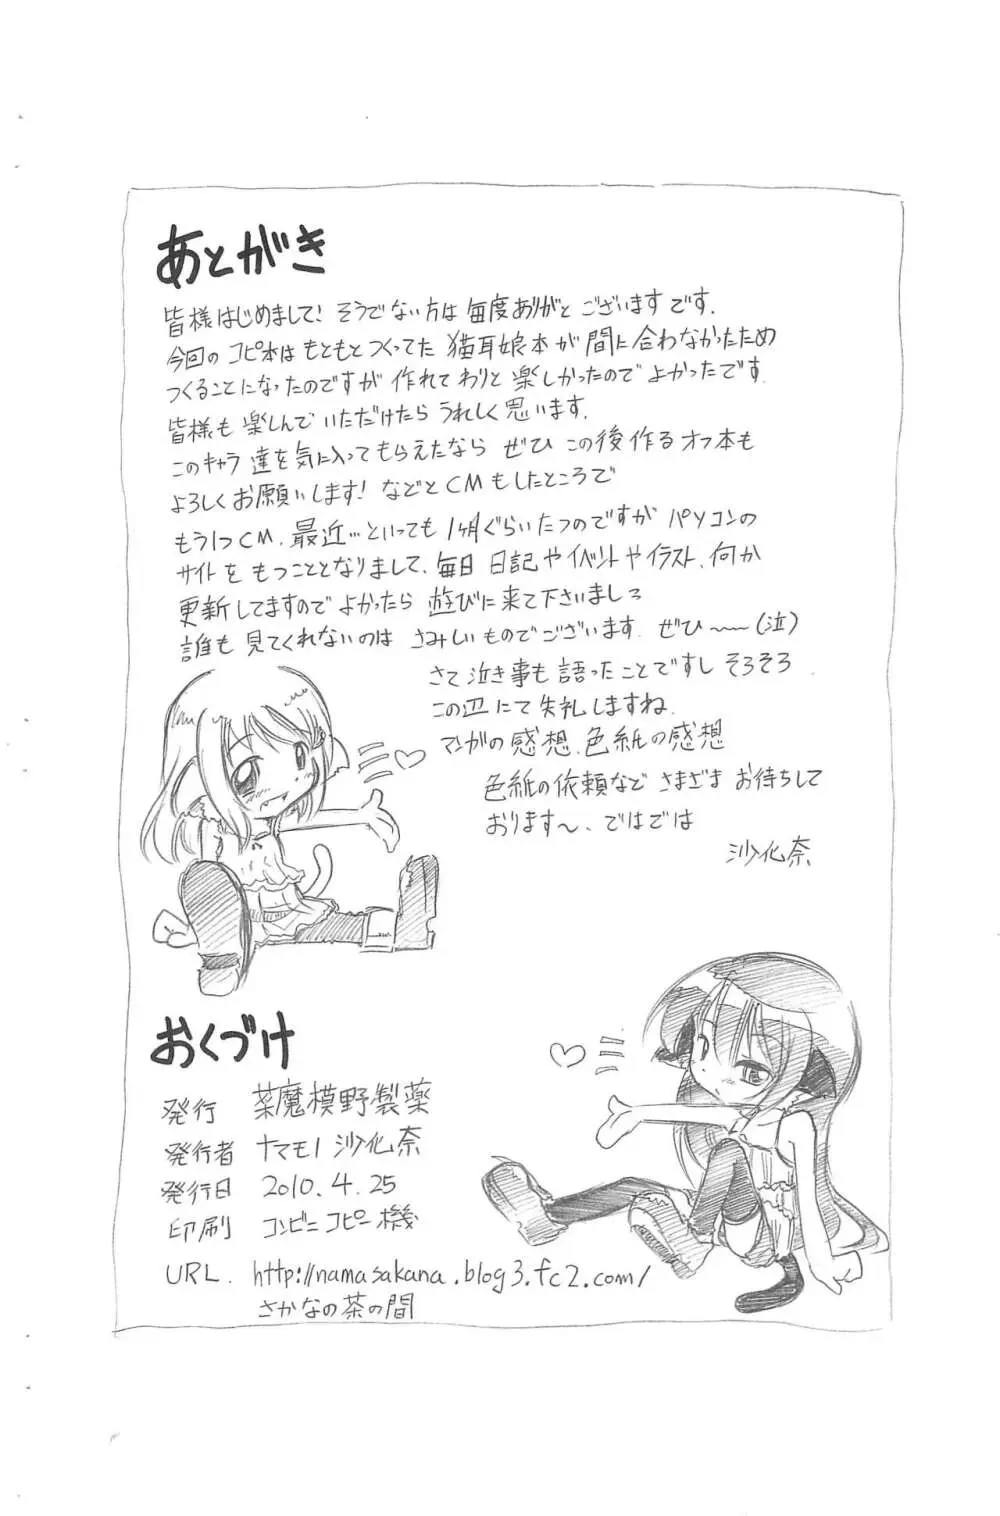 あとがき
皆様はじめまして! そうでない方は毎度ありがとございますです.
今回のコピ本はもともとつくってた猫耳娘本が間に合わなかったため
つくることになったのですが作れてわりと楽しかったのでよかったです.
皆様も楽しんでいただけたらうれしく思います.
このキャラ達を気に入ってもらえたならぜひこの後作るオフ本も
よろしくお願いします! などとCMもしたところで
もう1つCM. 最近…といっても1ヶ月ぐらいたつのですがパソコンの
サイトをもつこととなりまして、毎日日記やイベントやイラスト、何か
更新してますのでよかったら遊びに来て下さいましろ
誰も見てくれないのはさみしいものでございます. ぜひ〜〜(泣)
さて泣き事も語ったことですしそろそろ
この辺にて失礼しますね.
マンガの感想、色紙の感想
色紙の依頼などさまざまお待ちして
おります〜、ではでは
沙化奈
おくづけ
発行 菜魔模野製薬
発行者 ナマモノ沙化奈
発行日 2010.4.25
印刷 コンビニコピー機
URL. http://namasakana.blog3.fc2.com/
さかなの茶の間